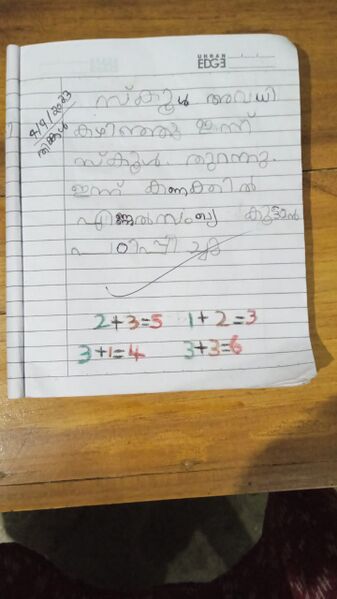 URBAN
EDGE
4/9/2023
തിങ്കൾ
സ്കൂൾ അവധി
കഴിഞ്ഞു ഇന്ന്
സ്കൂൾ. തുറന്നു.
ഇന്ന് കണക്കിൽ
കൂട്ടാൻ
പഠിപ്പിച്ചു
2+3=5 1+2=3
3+1=4 3+3=6